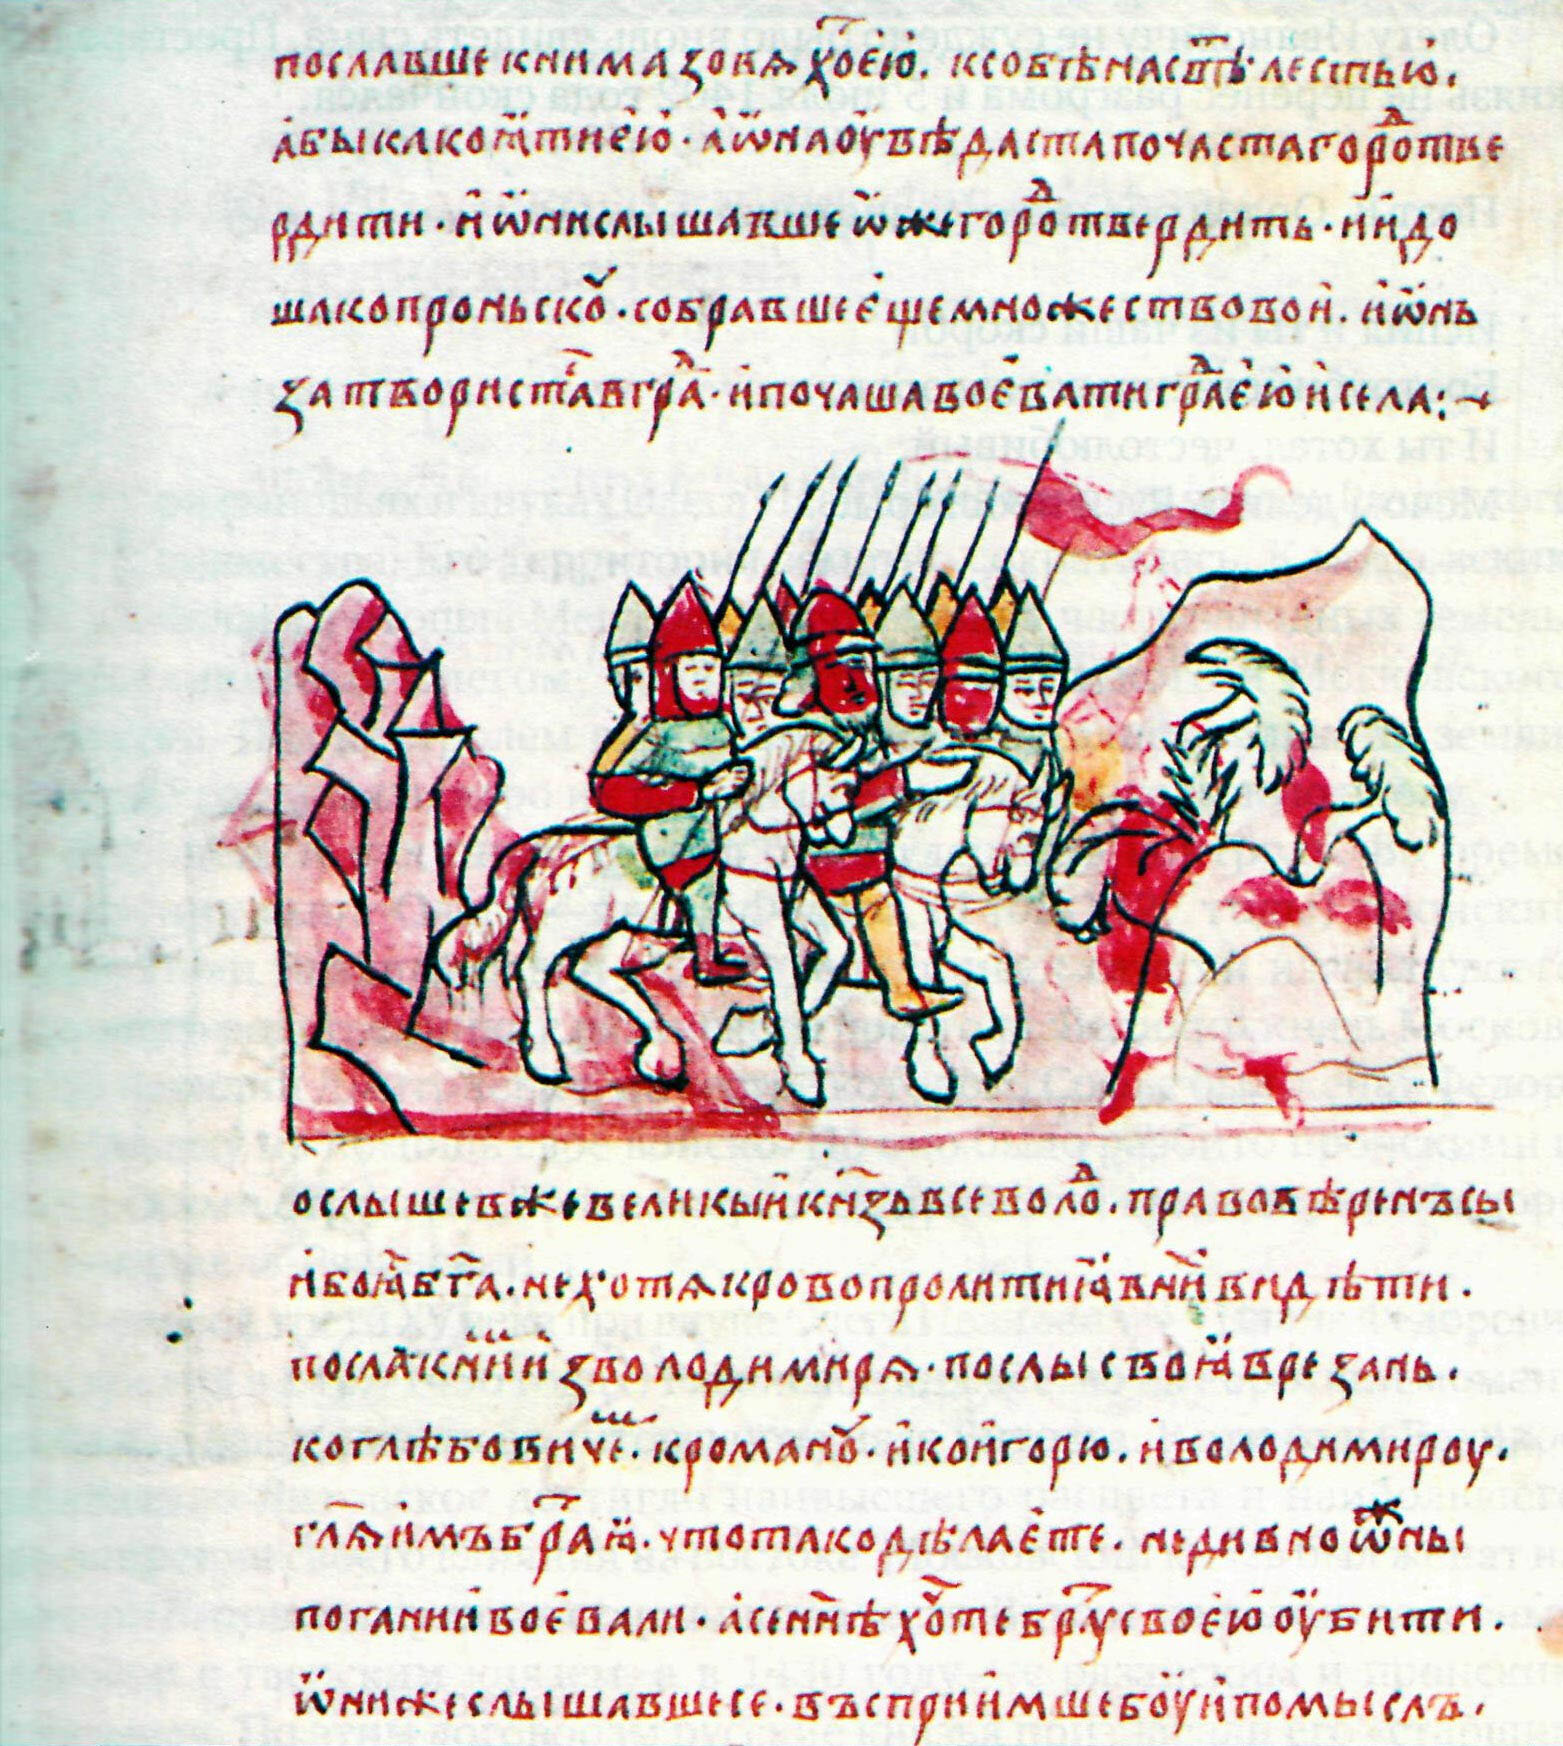 пославше книма зовѧ хо̑ею̀. ксобѣ насн̑ѣ лестью̀.
а̀быкако ꙗ̑тнею̀ · а̀ѡ̑на оу̀вѣдаста почаста горо̑д твe
рдити · ѝ ѡ̑ни слышавше ѡ̑же горо̑д твердить · ѝѝдо
шакопроньско̑ · собравше ѐще множествовоѝ . ѝѡ̑нь
затвориста̑ вгра̑д · ѝпочаша воѐвати гра̑д ѐю̀ ѝсела :~
ослышев же великыѝ кн҃зь всеволо̑д . правовѣренъ сы
ѝбоꙗ̑ бг҃а . нехотѧ кровопролитиꙗ̑ вни̑ видѣти .
посла̑ к ни̑ ѝзволодимирѧ · послы своꙗ̑ врезань .
коглѣбовиче̑ · кромано̑ · ѝкоѝгорю . ѝволодимироу .
гл҃ѧ ѝмъ бр҃аꙗ̑ . что тако дѣлаѐте . недивно ѡ̑ж ны
поганиѝ воѐвали · а̀се нн҃ѣ хо̑те бр҃у своѐю̀ оу̀бити .
ѡ̑ниже слышавше се · въсприѝмше боу̀ѝ помыслъ .